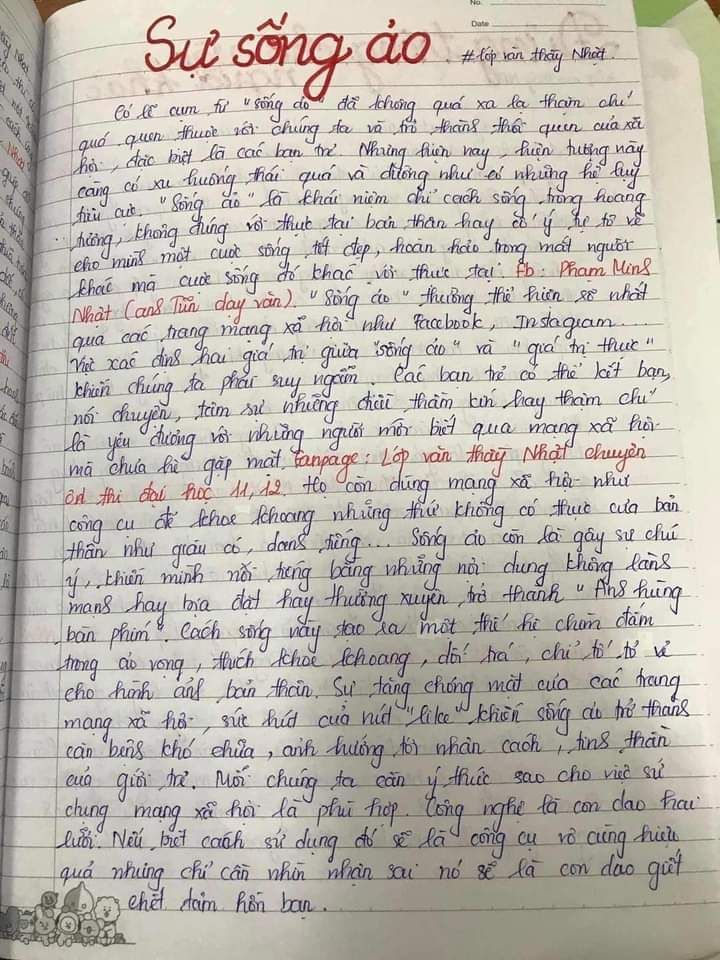 No.
Date
Sự sống ảo
#lớp văn thầy Nhật.
Có lẽ cụm từ "sống ảo" đã không quá xa lạ thậm chí
quá quen thuộc với chúng ta và trở thành thói quen của xã
hội, đặc biệt là các bạn trẻ. Nhưng hiện nay, hiện tượng này
càng có xu hướng thái quá và dường như có những hệ lụy
tiêu cực. "Sống ảo" là khái niệm chỉ cách sống trong hoang
tưởng, không đúng với thực tại bản thân hay cố ý tô vẽ
cho mình một cuộc sống tốt đẹp, hoàn hảo trong mắt người
khác mà cuộc sống đó khác với thực tại. Fb: Phạm Minh
Nhật (anh Tũn dạy văn). "Sống ảo" thường thể hiện rõ nhất
qua các trang mạng xã hội như Facebook, Instagram...
Việc xác định hai giá trị giữa "sống ảo" và "giá trị thực"
khiến chúng ta phải suy ngẫm. Các bạn trẻ có thể kết bạn,
nói chuyện, tâm sự những điều thầm kín hay thậm chí
là yêu đương với những người mới biết qua mạng xã hội
mà chưa hề gặp mặt. Fanpage: Lớp văn thầy Nhật chuyên
ôn thi đại học 11, 12. Họ còn dùng mạng xã hội như
công cụ để khoe khoang những thứ không có thực của bản
thân như giàu có, danh tiếng... Sống ảo còn là gây sự chú
ý, khiến mình nổi tiếng bằng những nội dung không lành
mạnh hay bịa đặt hay thường xuyên trở thành "Anh hùng
bàn phím". Cách sống này tạo ra một thế hệ chìm đắm
trong ảo vọng, thích khoe khoang, dối trá, chỉ tô vẽ
cho hình ảnh bản thân. Sự tăng chóng mặt của các trang
mạng xã hội, sức hút của nút "like" khiến sống ảo trở thành
căn bệnh khó chữa, ảnh hưởng tới nhân cách, tinh thần
của giới trẻ. Mỗi chúng ta cần ý thức sao cho việc sử
dụng mạng xã hội là phù hợp. Công nghệ là con dao hai
lưỡi. Nếu biết cách sử dụng đó sẽ là công cụ vô cùng hiệu
quả nhưng chỉ cần nhìn nhận sai nó sẽ là con dao giết
chết tâm hồn bạn.